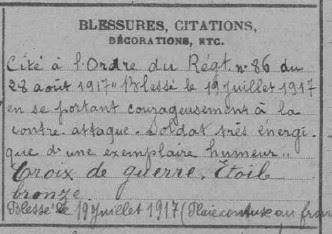 BLESSURES, CITATIONS,
DÉCORATIONS, ETC.
Cité à l'Ordre du Régt. n° 86 du
28 août 1917 " Blessé le 19 juillet 1917
en se portant courageusement à la
contre attaque - Soldat très énergi-
que d'une exemplaire humeur "
Croix de guerre. Étoile
bronze
Blessé le 19 juillet 1917 (Plaie contuse au